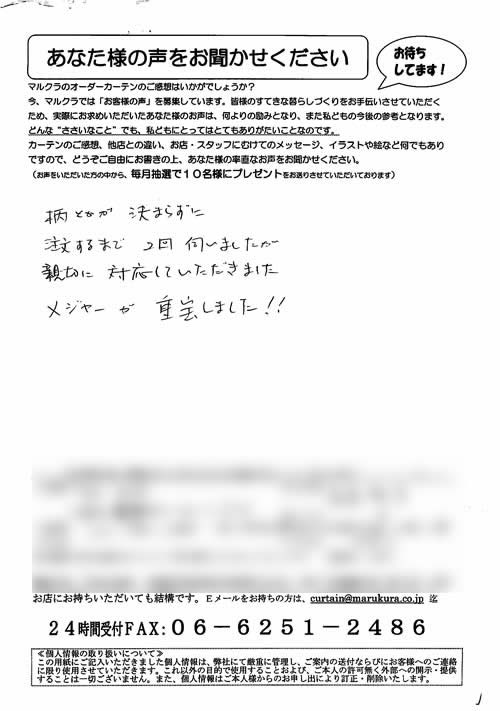 あなた様の声をお聞かせください
お待ち
してます!
マルクラのオーダーカーテンのご感想はいかがでしょうか?
今、マルクラでは「お客様の声」を募集しています。皆様のすてきな暮らしづくりをお手伝いさせていただく
ため、実際にお求めいただいたあなた様のお声は、何よりの励みとなり、また私どもの今後の参考となります。
どんな“ささいなこと”でも、私どもにとってはとてもありがたいことなのです。
カーテンのご感想、他店との違い、お店・スタッフにむけてのメッセージ、イラストや絵など何でもあり
ですので、どうぞご自由にお書きの上、あなた様の率直なお声をお聞かせください。
(お声をいただいた方の中から、毎月抽選で10名様にプレゼントをお送りさせていただいております)
柄とかが 決まらずに
注文するまで 2回 伺いましたが
親切に 対応していただきました
メジャーが 重宝しました!!
お店にお持ちいただいても結構です。Eメールをお持ちの方は、curtain@marukura.co.jp 迄
24時間受付FAX:06-6251-2486
≪個人情報の取り扱いについて≫
この用紙にご記入いただきました個人情報は、弊社にて厳重に管理し、ご案内の送付ならびにお客様へのご連絡
に限り使用させていただきます。これ以外の目的で使用することおよび、ご本人の許可無く外部への開示・提供
することは一切ございません。また、個人情報はご本人様からのお申し出により訂正・削除いたします。